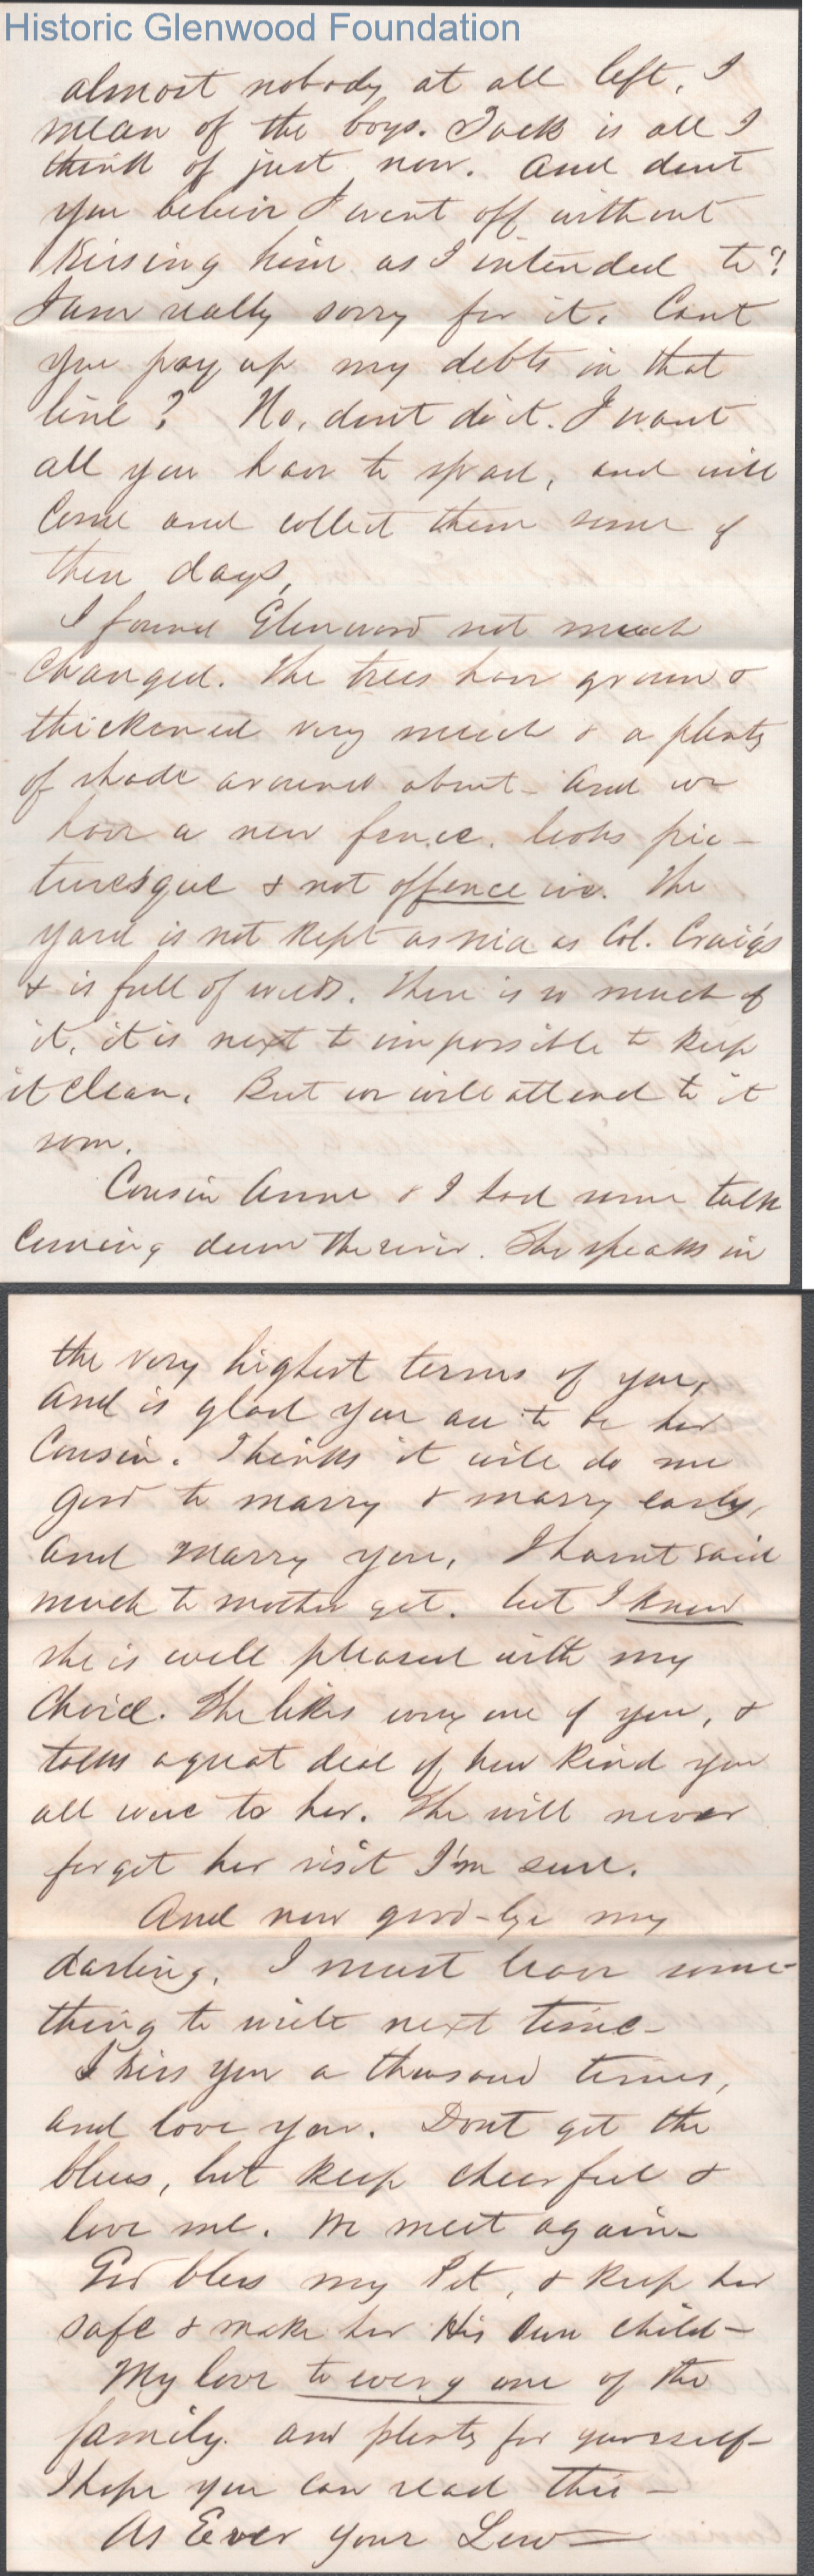 Historic Glenwood Foundation
almost nobody at all left, I
mean of the boys. Jack is all I
think of just now. And dont
you believe I went off without
Kissing him as I intended to?!
I am really sorry for it. Cant
you pay up my debts in that
line? No, dont do it. I want
all you have to spare, and will
Come and collect them some of
these days,
I found Glenwood not much
Changed. The trees have grown &
thickened very much & a plenty
of shade around about - And we
have a new fence. looks pic-
turesque & not offence ive. The
yard is not kept as nice as Col. Craigs
& is full of weeds. There is so much of
it, it is next to impossible to keep
it clean. But we will attend to it
soon.
Cousin Anne & I had some talk
Coming down the river. She speaks in
the very highest terms of you,
and is glad you are to be her
Cousin. Thinks it will do me
good to marry & marry early,
and marry you, I havnt said
much to mother yet. but I know
she is well pleased with my
Choice. She likes every one of you, &
talks a great deal of how kind you
all were to her. She will never
forget her visit I'm sure.
And now good-bye my
darling. I must leave some-
thing to write next time -
I kiss you a thousand times,
and love you. Dont get the
blues, but keep cheerful &
love me. We meet again -
God bless my Pet, & keep her
safe & make her His own child -
My love to every one of the
family. and plenty for yourself -
I hope you can read this -
As Ever your Lew